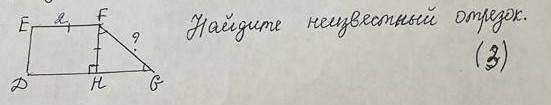 E 2 F
?
D H G
Найдите неизвестный отрезок.
(3)